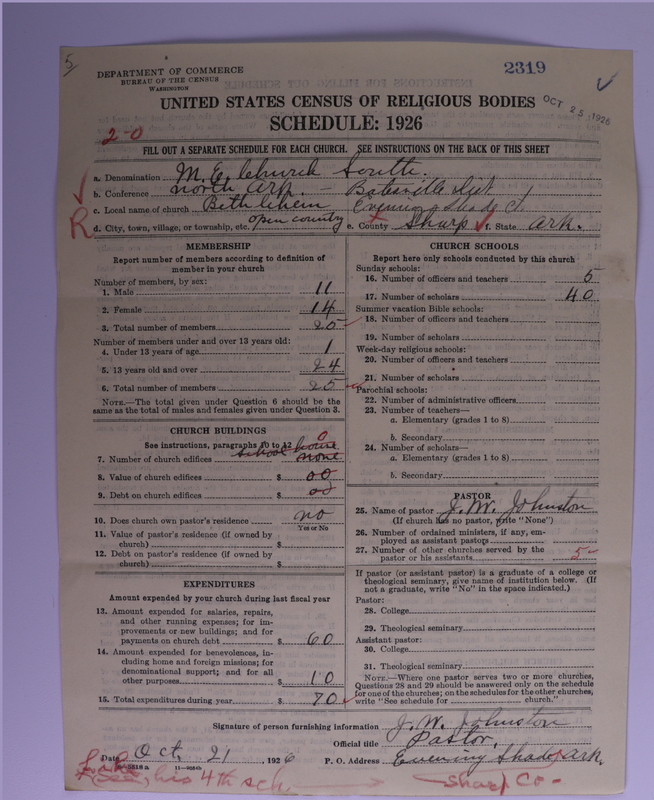 5
DEPARTMENT OF COMMERCE
BUREAU OF THE CENSUS
WASHINGTON
2319
UNITED STATES CENSUS OF RELIGIOUS BODIES
OCT 25 1926
SCHEDULE: 1926
2-0
FILL OUT A SEPARATE SCHEDULE FOR EACH CHURCH. SEE INSTRUCTIONS ON THE BACK OF THIS SHEET
a. Denomination M. E. Church South.
b. Conference North Ark. - Batesville Dist.
c. Local name of church Bethlehem Evening Shade Ct.
R d. City, town, village, or township, etc. open country e. County Sharp f. State Ark.
MEMBERSHIP
Report number of members according to definition of
member in your church
Number of members, by sex:
1. Male 11
2. Female 14
3. Total number of members 25
Number of members under and over 13 years old:
4. Under 13 years of age 1
5. 13 years old and over 24
6. Total number of members 25
NOTE.—The total given under Question 6 should be the
same as the total of males and females given under Question 3.
CHURCH BUILDINGS
See instructions, paragraphs 10 to 12
school house 0
7. Number of church edifices none
8. Value of church edifices $ 00
9. Debt on church edifices $ 00
10. Does church own pastor's residence no
Yes or No
11. Value of pastor's residence (if owned by
church) $
12. Debt on pastor's residence (if owned by
church) $
EXPENDITURES
Amount expended by your church during last fiscal year
13. Amount expended for salaries, repairs,
and other running expenses; for im-
provements or new buildings; and for
payments on church debt $ 60
14. Amount expended for benevolences, in-
cluding home and foreign missions; for
denominational support; and for all
other purposes $ 10
15. Total expenditures during year $ 70
CHURCH SCHOOLS
Report here only schools conducted by this church
Sunday schools:
16. Number of officers and teachers 5
17. Number of scholars 40
Summer vacation Bible schools:
18. Number of officers and teachers
19. Number of scholars
Week-day religious schools:
20. Number of officers and teachers
21. Number of scholars
Parochial schools:
22. Number of administrative officers
23. Number of teachers—
a. Elementary (grades 1 to 8)
b. Secondary
24. Number of scholars—
a. Elementary (grades 1 to 8)
b. Secondary
PASTOR
25. Name of pastor J. W. Johnston
(If church has no pastor, write "None")
26. Number of ordained ministers, if any, em-
ployed as assistant pastors
27. Number of other churches served by the
pastor or his assistants 5
If pastor (or assistant pastor) is a graduate of a college or
theological seminary, give name of institution below. (If
not a graduate, write "No" in the space indicated.)
Pastor:
28. College
29. Theological seminary
Assistant pastor:
30. College
31. Theological seminary
NOTE.—Where one pastor serves two or more churches,
Questions 28 and 29 should be answered only on the schedule
for one of the churches; on the schedules for the other churches,
write "See schedule for church."
Signature of person furnishing information J. W. Johnston
Official title Pastor.
Date Oct, 21, 1926 P. O. Address Evening Shade Ark.
his 4th sch. Sharp Co-